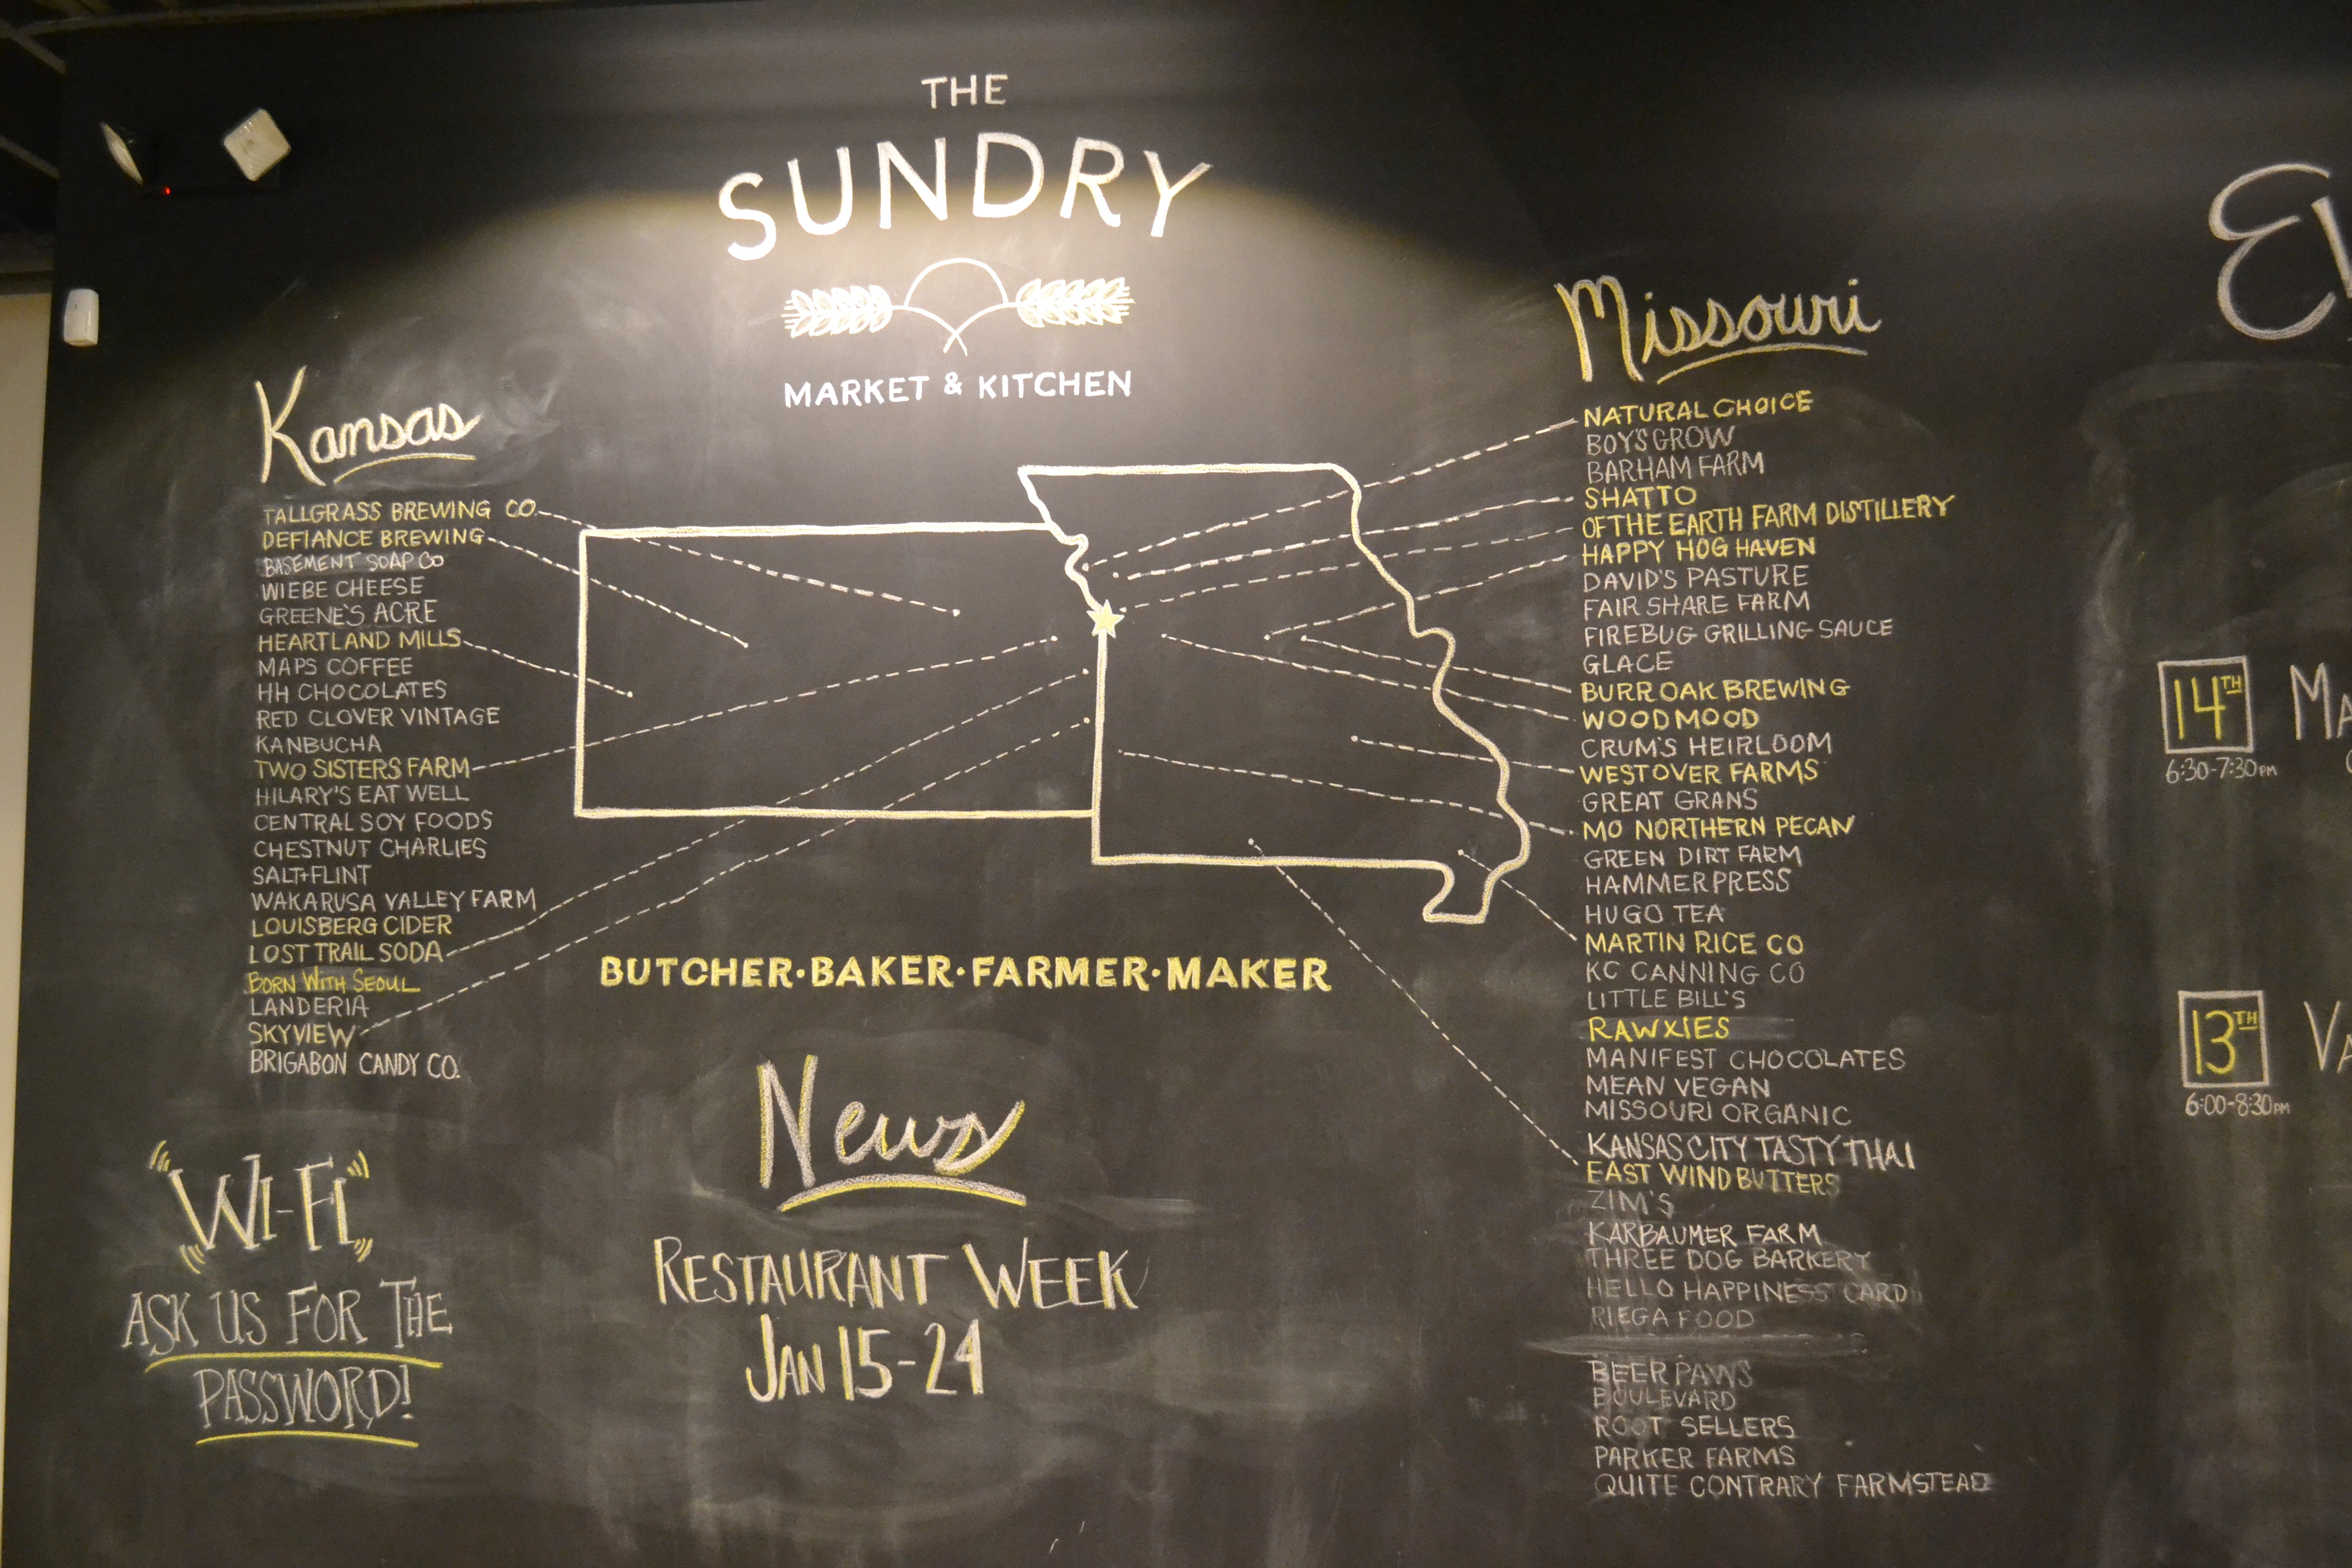 THE
SUNDRY
MARKET & KITCHEN
Kansas
TALLGRASS BREWING CO.
DEFIANCE BREWING
BASEMENT SOAP CO
WIEBE CHEESE
GREENE'S ACRE
HEARTLAND MILLS
MAPS COFFEE
HH CHOCOLATES
RED CLOVER VINTAGE
KANBUCHA
TWO SISTERS FARM
HILARY'S EAT WELL
CENTRAL SOY FOODS
CHESTNUT CHARLIES
SALT+FLINT
WAKARUSA VALLEY FARM
LOUISBERG CIDER
LOST TRAIL SODA
BORN WITH SEOUL
LANDERIA
SKYVIEW
BRIGABON CANDY CO.
WI-FI
ASK US FOR THE
PASSWORD!
BUTCHER·BAKER·FARMER·MAKER
News
RESTAURANT WEEK
JAN 15-24
Missouri
NATURAL CHOICE
BOY'S GROW
BARHAM FARM
SHATTO
OF THE EARTH FARM DISTILLERY
HAPPY HOG HAVEN
DAVID'S PASTURE
FAIR SHARE FARM
FIREBUG GRILLING SAUCE
GLACE
BURR OAK BREWING
WOODMOOD
CRUM'S HEIRLOOM
WESTOVER FARMS
GREAT GRANS
MO NORTHERN PECAN
GREEN DIRT FARM
HAMMERPRESS
HUGO TEA
MARTIN RICE CO
KC CANNING CO
LITTLE BILL'S
RAWXIES
MANIFEST CHOCOLATES
MEAN VEGAN
MISSOURI ORGANIC
KANSAS CITY TASTY THAI
EAST WIND BUTTERS
ZIM'S
KARBAUMER FARM
THREE DOG BARKERY
HELLO HAPPINESS CARD
RIEGA FOOD
BEER PAWS
BOULEVARD
ROOT SELLERS
PARKER FARMS
QUITE CONTRARY FARMSTEAD
14TH
6:30-7:30PM
13TH
6:00-8:30PM